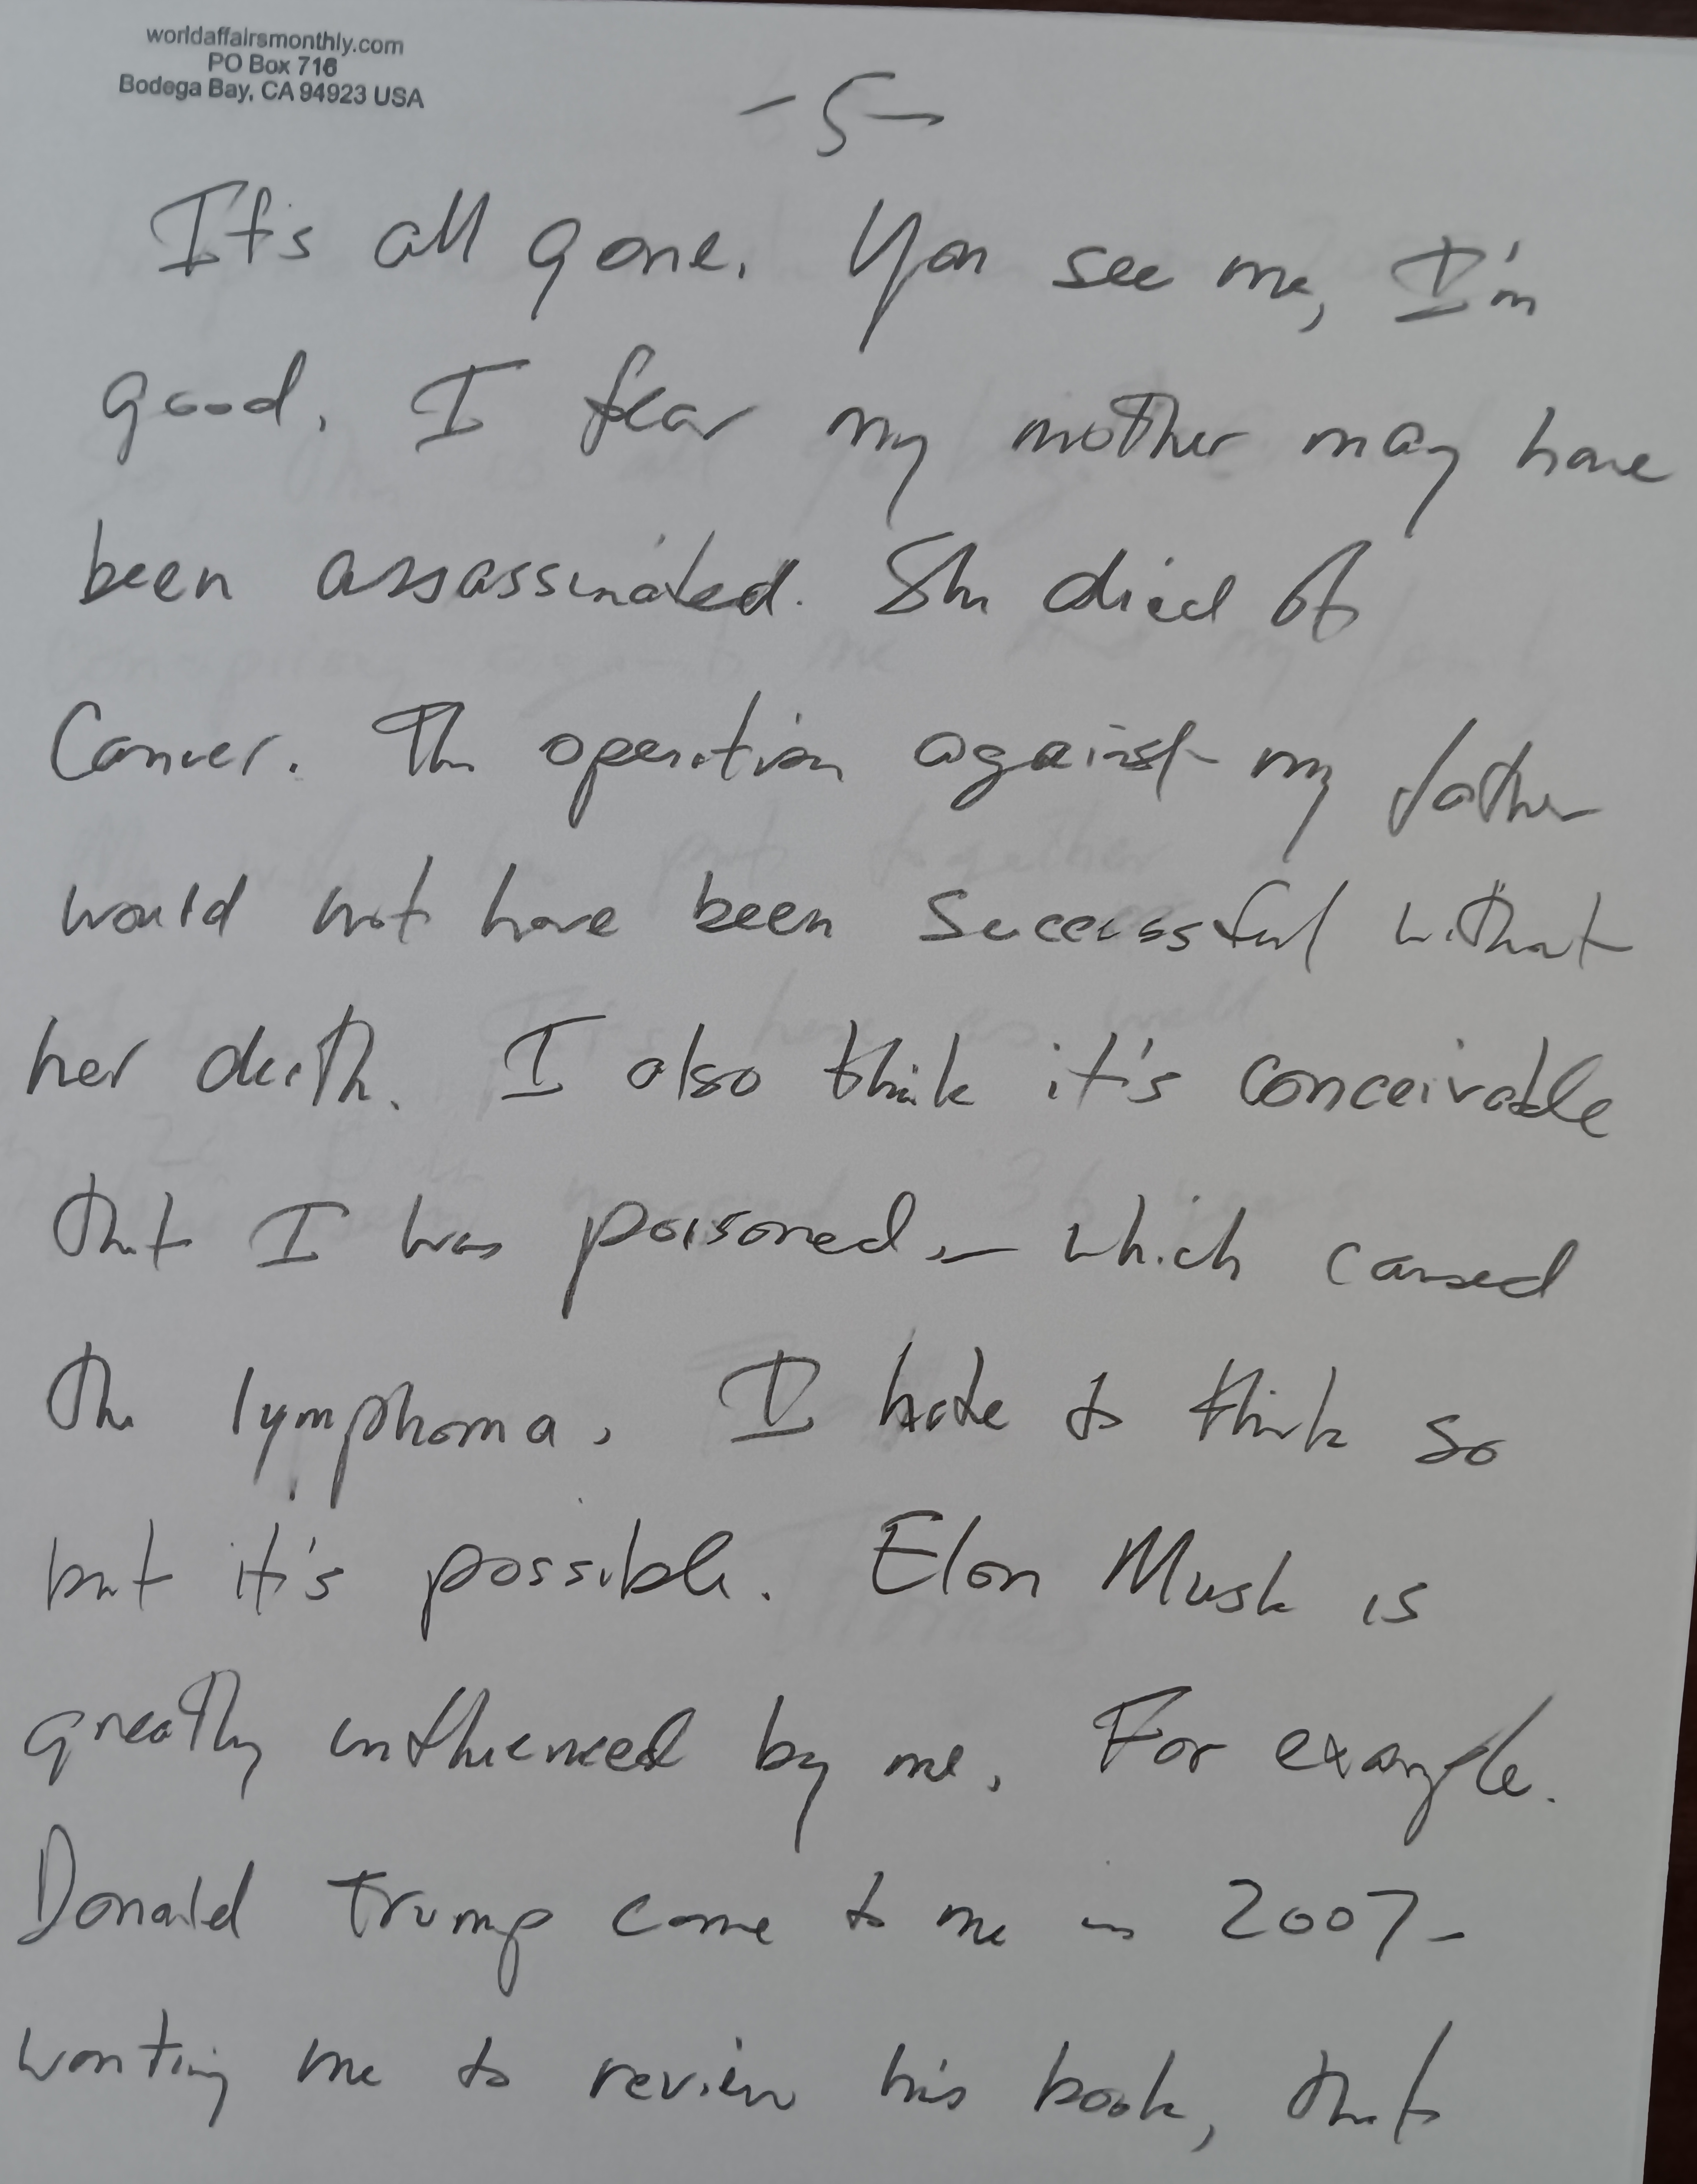 worldaffairsmonthly.com
PO Box 716
Bodega Bay, CA 94923 USA
-5-
It's all gone. You see me, I'm
good. I fear my mother may have
been assassinated. She died of
Cancer. The operation against my father
would not have been successful without
her death. I also think it's conceivable
that I was poisoned - which caused
the lymphoma. I hate to think so
but it's possible. Elon Musk is
greatly influenced by me. For example.
Donald Trump came to me in 2007 -
wanting me to review his book, that